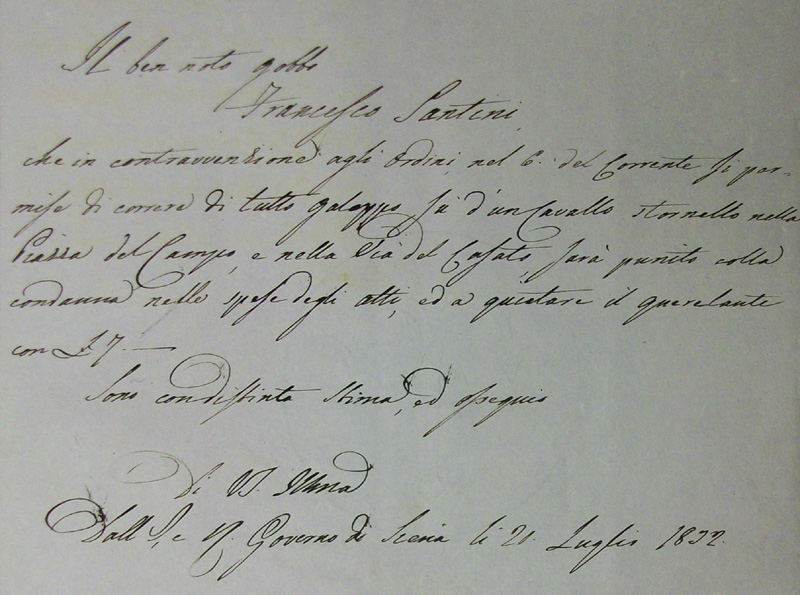 Il ben noto gobbo
Francesco Santini
che in contravvenzione agli Ordini, nel 6. del Corrente si per=
mise di correre di tutto galoppo sù d'un Cavallo stornello nella
Piazza del Campo, e nella Via del Casato, sarà punito colla
condanna nelle spese degli atti, ed a quietare il querelante
con £ 7. —
Sono con distinta stima, ed ossequio
Di V. S. Illma
Dall' I. e R. Governo di Siena li 20. Luglio 1832.